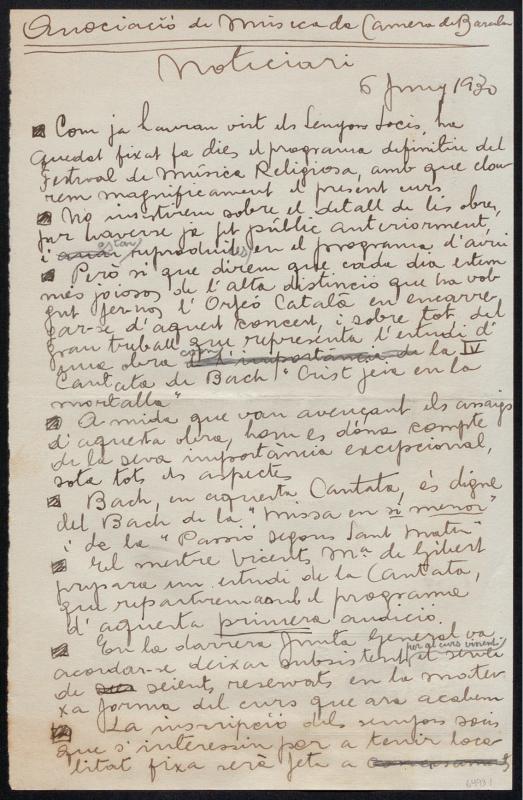 Associació de Música da Camera de Barcelona
Noticiari
6 Juny 1930
Com ja hauran vist els Senyors Socis, ha
quedat fixat fa dies el programa definitiu del
Festival de Música Religiosa, amb que clou-
rem magnificament el present curs
No insistirem sobre el detall de les obres,
per haverse ja fet públic anteriorment,
i estar reproduides en el programa d'avui
Però si que direm que cada dia estem
més joiosos de l'alta distinció que ha vol-
gut fer-nos l'Orfeó Català en encarre-
gar-se d'aquest concert, i sobre tot del
gran treball que representa l'estudi d'
una obra com d'importancia de la IV
Cantata de Bach "Crist jeia en la
mortalla"
A mida que van avençant els assaigs
d'aquesta obra, hom es dóna compte
de la seva importància excepcional,
sota tots els aspectes
Bach, en aquesta Cantata, és digne
del Bach de la "Missa en si menor"
i de la "Passió segons Sant Mateu"
El mestre Vicents Mª de Gibert
prepara un estudi de la Cantata,
que repartirem amb el programa
d'aquesta primera audició.
En la darrera Junta General va
acordar-se deixar subsistent, per al curs vinent, el servei
de seients reservats en la matei-
xa forma del curs que ara acabem
La inscripció dels senyors socis
que s'interessin per a tenir loca-
litat fixa serà feta a
6498 1